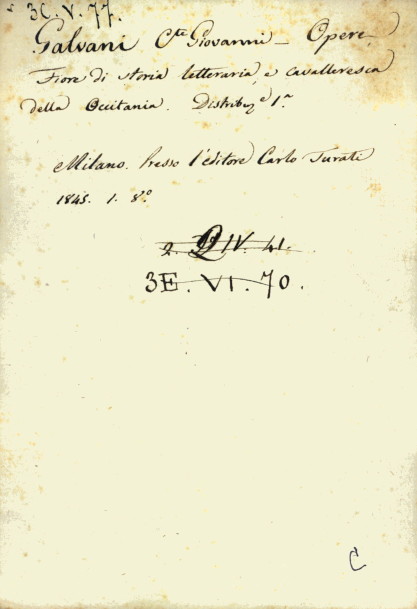 3C. V. 77.
Galvani Cte Giovanni – Opere,
Fiore di storia letteraria, e cavalleresca
della Occitania. Distribuze 1a
Milano. Presso l'editore Carlo Turati
1845. 1. 8.°
2. IV. 41.
3E. VI. 70.
C